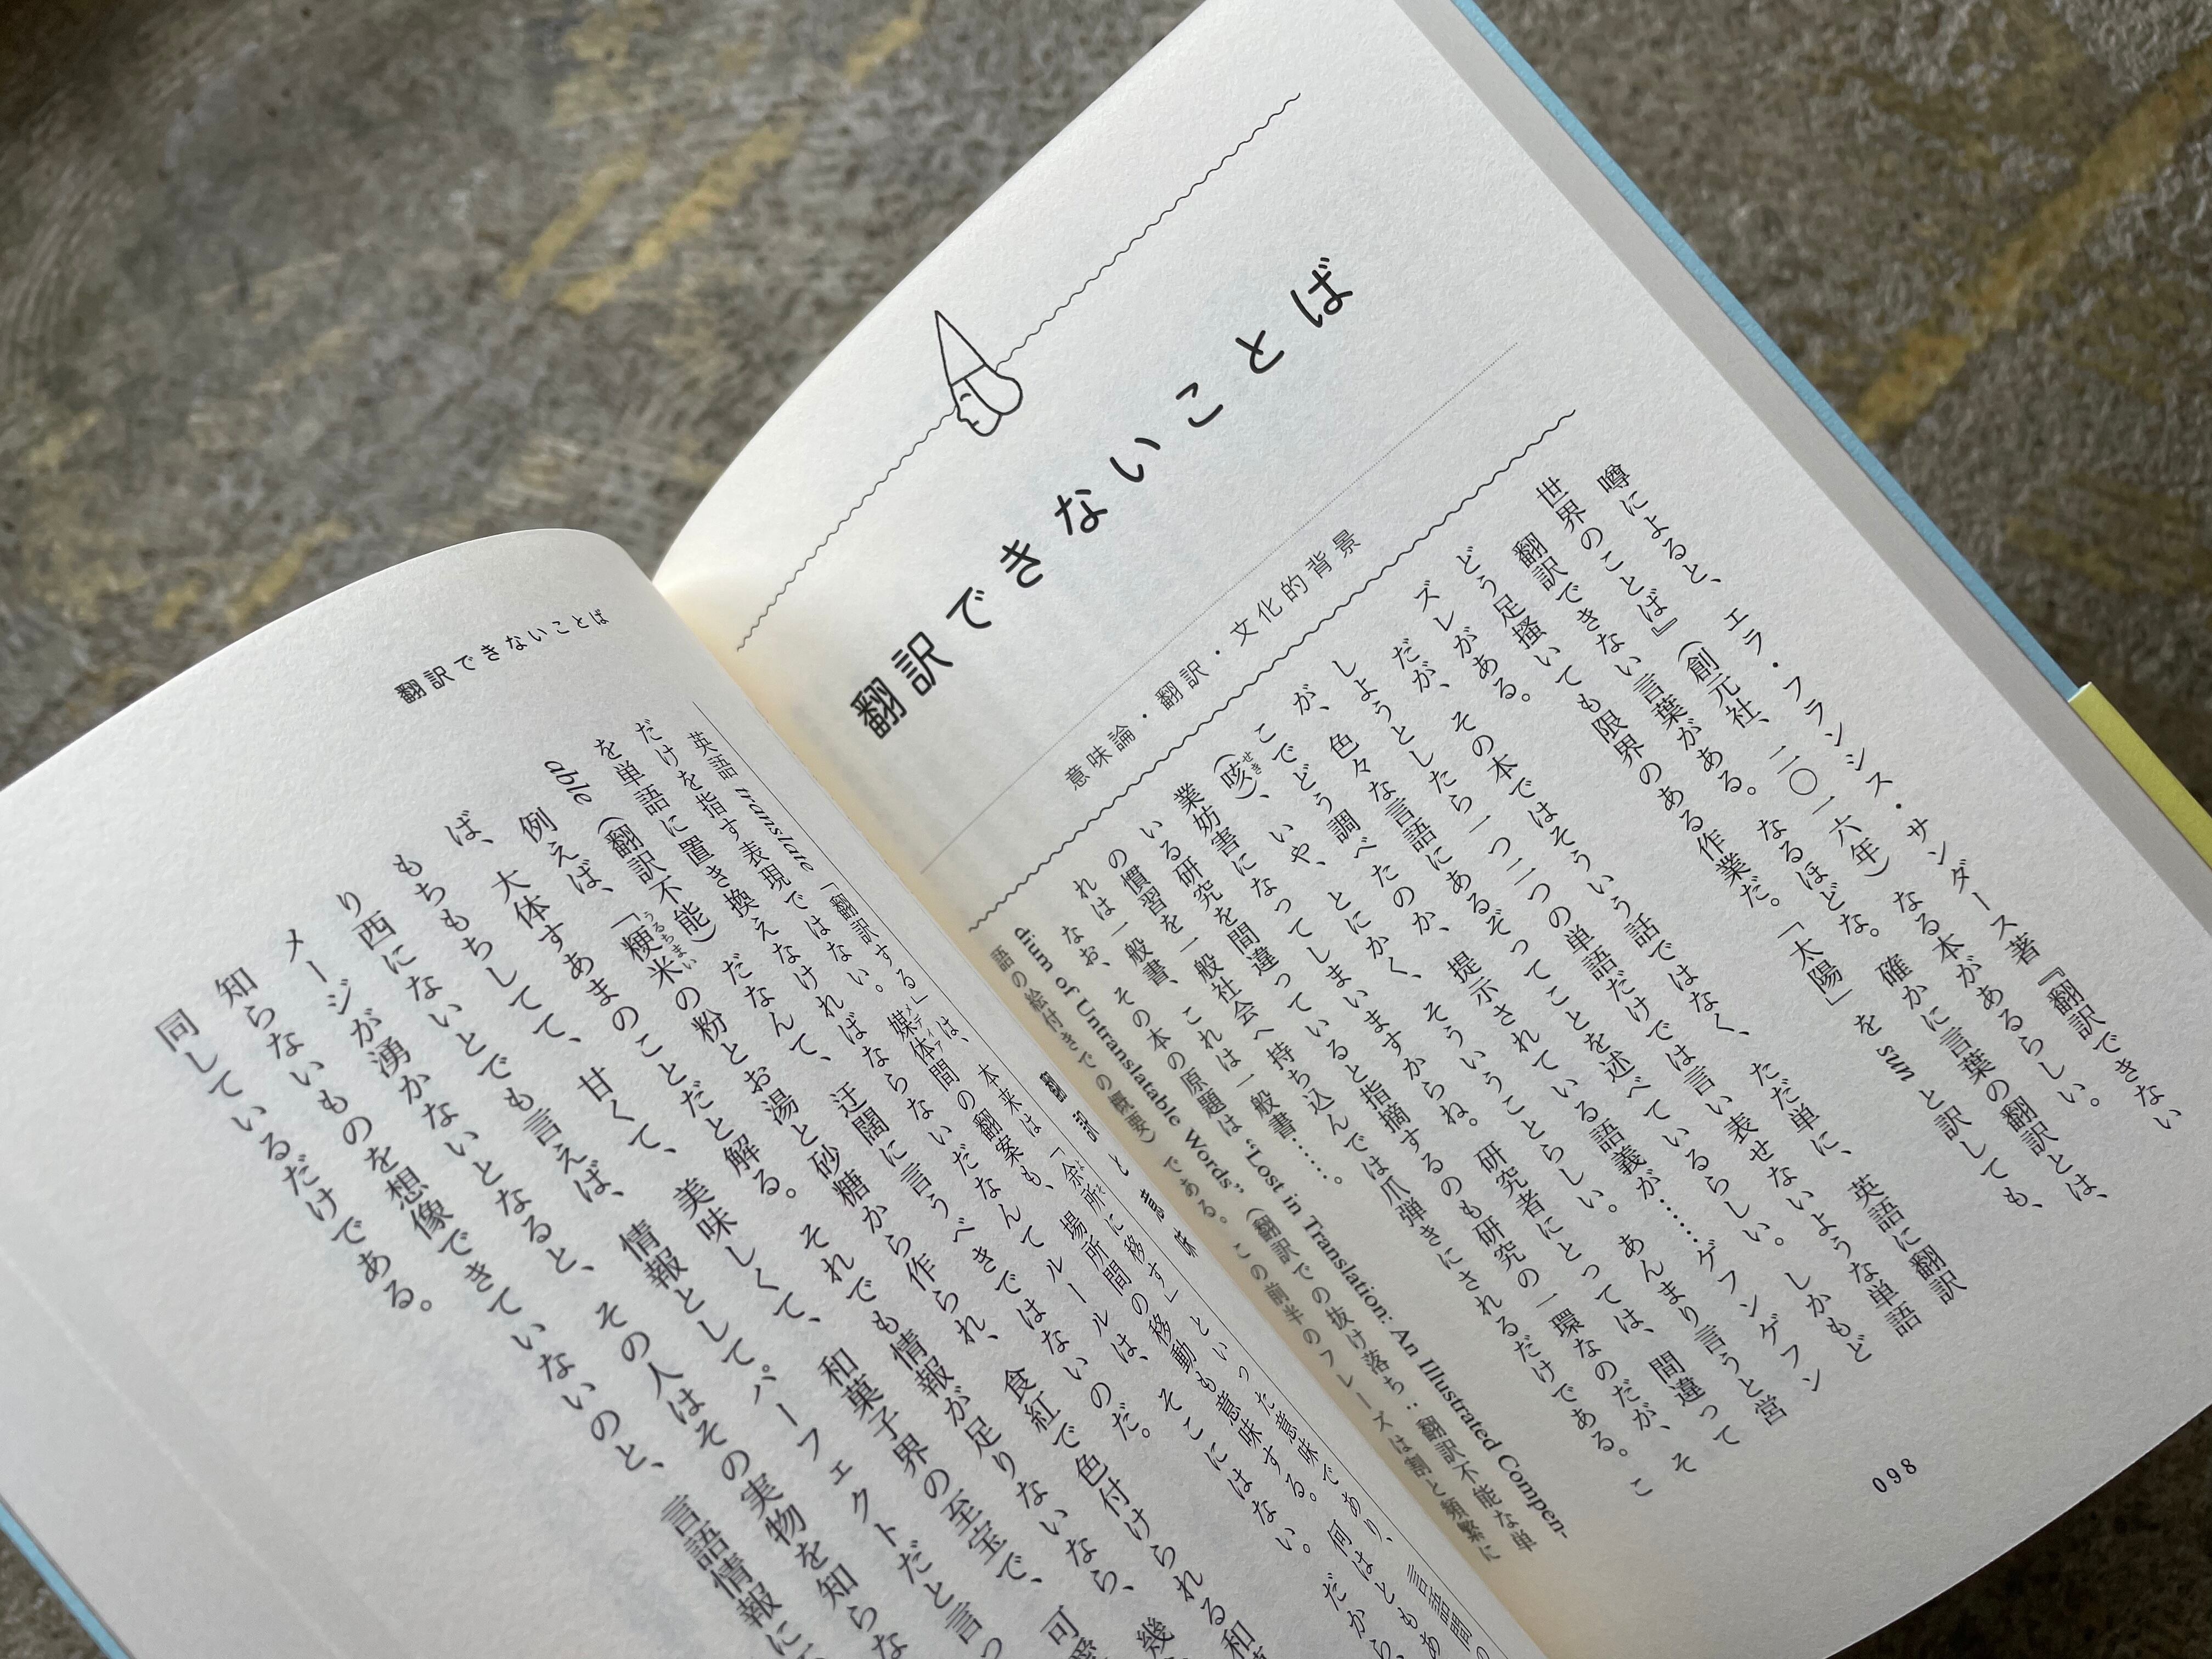 翻訳できないことば
意味論・翻訳・文化的背景
噂によると、エラ・フランシス・サンダース著『翻訳できない
世界のことば』（創元社、二〇一六年）なる本があるらしい。
翻訳できない言葉がある。なるほどな。確かに言葉の翻訳とは、
どう足掻いても限界のある作業だ。「太陽」を sun と訳しても、
ズレがある。
だが、その本ではそういう話ではなく、ただ単に、英語に翻訳
しようとしたら一つ二つの単語だけでは言い表せないような単語
が、色々な言語にあるぞってことを述べているらしい。しかもど
こでどう調べたのか、提示されている語義が……ゲフンゲフン
（咳）、いや、とにかく、そういうことらしい。あんまり言うと営
業妨害になってしまいますからね。研究者にとっては、間違って
いる研究を間違っていると指摘するのも研究の一環なのだが、そ
の慣習を一般社会へ持ち込んでは爪弾きにされるだけである。こ
れは一般書、これは一般書……。
なお、その本の原題は “Lost in Translation: An Illustrated Compen-
dium of Untranslatable Words”（翻訳での抜け落ち：翻訳不能な単
語の絵付きでの概要）である。この前半のフレーズは割と頻繁に
098
翻訳できないことば
翻訳と意味
英語 translate「翻訳する」は、本来は「余所に移す」といった意味であり、言語間の
だけを指す表現ではない。媒体間の翻案も、場所間の移動も意味する。何はともあ
を単語に置き換えなければならないだなんてルールは、そこにはない。だから、
able（翻訳不能）だなんて、迂闊に言うべきではないのだ。
例えば、「粳米の粉とお湯と砂糖から作られ、食紅で色付けられる和
大体すあまのことだと解る。それでも情報が足りないなら、幾
ば、もちもちしてて、甘くて、美味しくて、和菓子界の至宝で、可愛
り西にないとでも言えば、情報としてパーフェクトだと言っ
メージが湧かないとなると、その人はその実物を知らな
知らないものを想像できていないのと、言語情報に
同しているだけである。